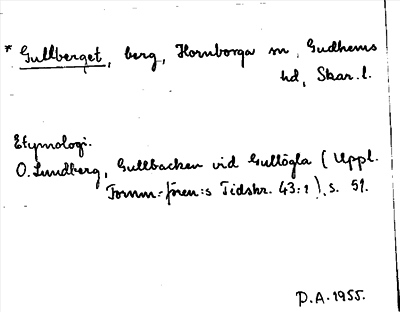 * Gullberget, berg, Hornborga sn, Gudhems
hd, Skar. l.
Etymologi.
O. Lundberg, Gullbacken vid Gullögla (Uppl.
Fornm.-fören:s Tidskr. 43:1), s. 51.
P.A. 1955.